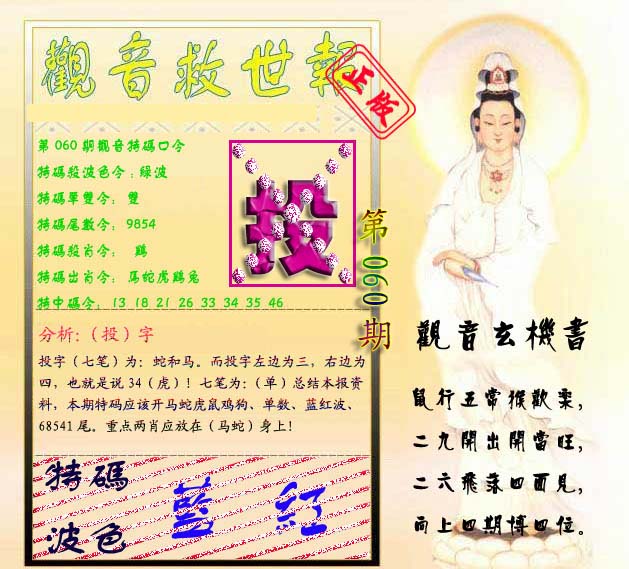 觀音救世報
正版
第060期觀音特碼口令
特碼殺波色令:綠波
特碼單雙令: 雙
特碼尾數令: 9854
特碼殺肖令: 鷄
特碼出肖令: 馬蛇虎鷄兔
特中碼令: 13 18 21 26 33 34 35 46
投
第060期
分析:（投）字
投字（七笔）为：蛇和马。而投字左边为三，右边为
四，也就是说34（虎）！七笔为:（单）总结本报资
料，本期特码应该开马蛇虎鼠鸡狗、单数、蓝红波、
68541尾。重点两肖应放在（马蛇）身上！
特碼
波色
藍 紅
觀音玄機書
鼠行五常猴歡栗，
二九開出開當旺，
二六飛落四面見，
向上四期博四位。